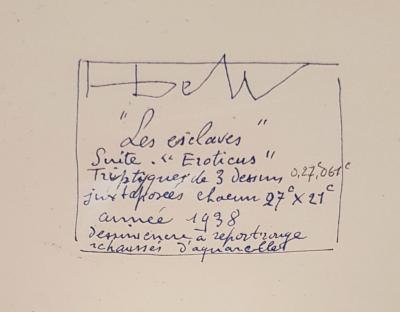 HDeW
"Les esclaves"
Suite . "Eroticus"
Triptyques de 3 dessins 0,27 c 061 c
juxtaposées chacun 27 c X 21 c
année 1938
dessin encre à report rouge
rehaussés d'aquarelles